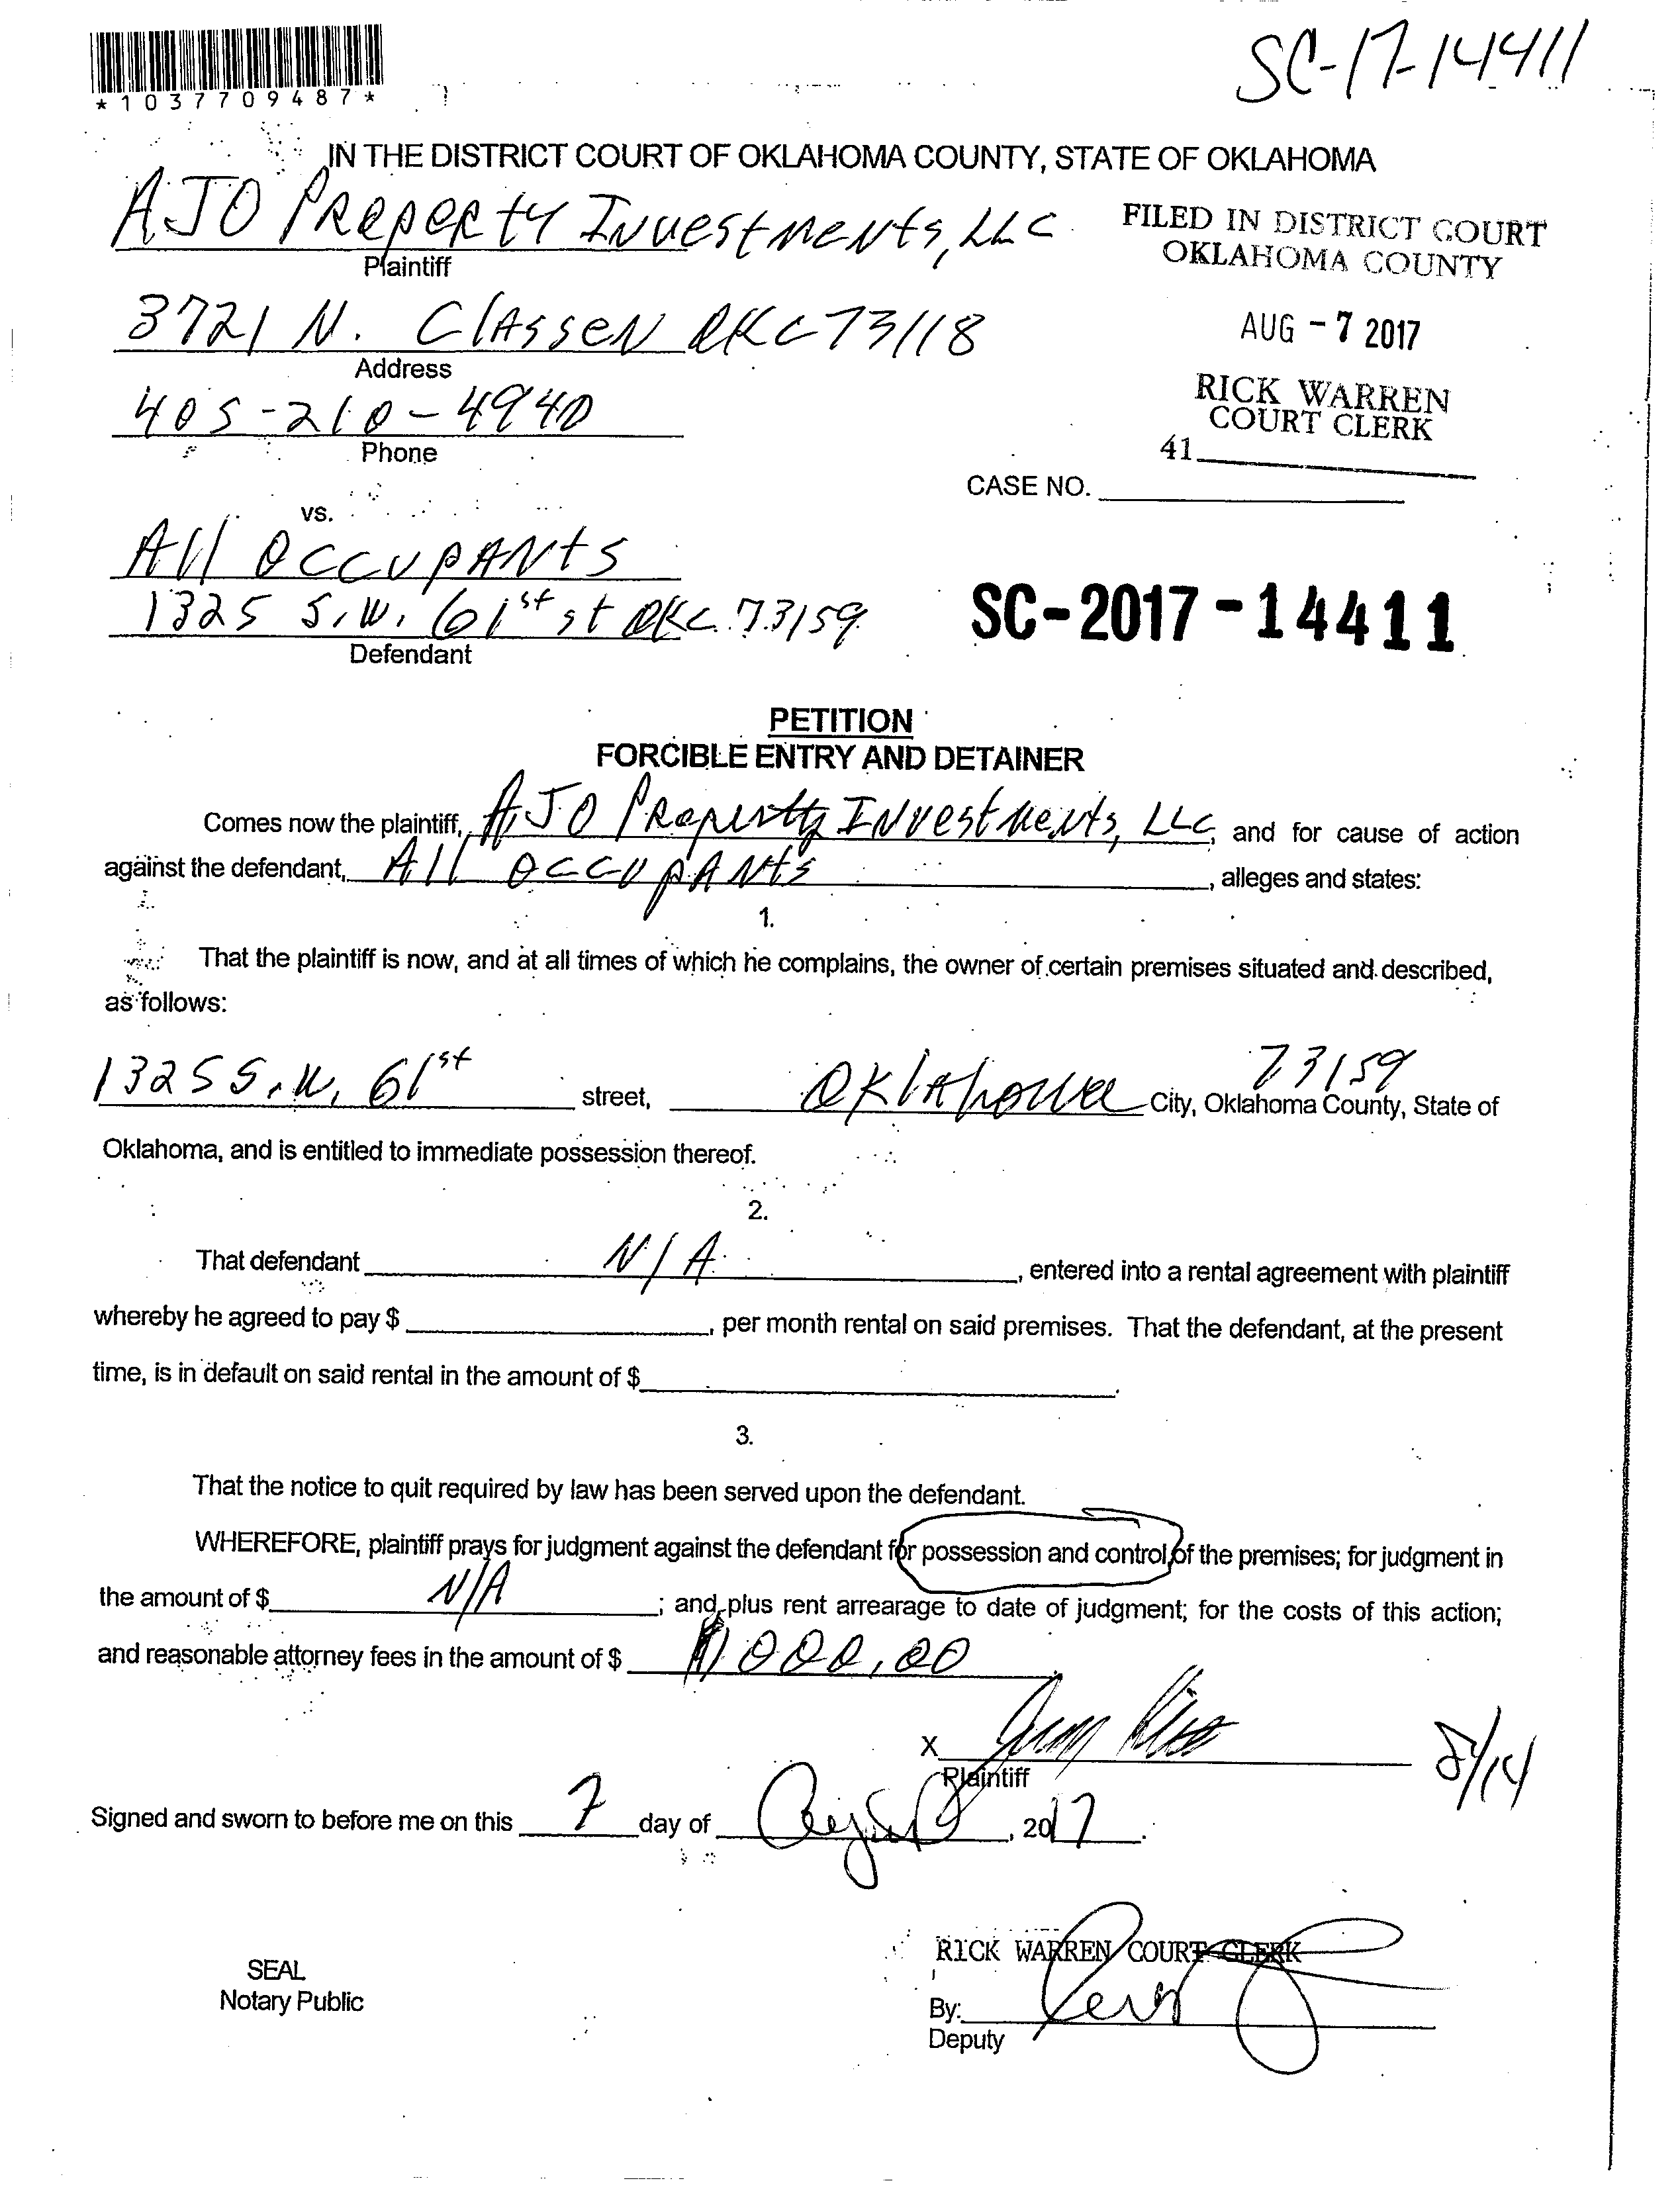 SC-17-14411
*1037709487*
IN THE DISTRICT COURT OF OKLAHOMA COUNTY, STATE OF OKLAHOMA
AJO PROPERTY INVESTMENTS, LLC
Plaintiff
FILED IN DISTRICT COURT
OKLAHOMA COUNTY
3721 N. Classen OKC 73118
Address
AUG - 7 2017
405-210-4940
Phone
RICK WARREN
COURT CLERK
41
CASE NO.
vs.
All OCCUPANTS
1325 S.W. 61st st OKC 73159
Defendant
SC-2017-14411
PETITION
FORCIBLE ENTRY AND DETAINER
Comes now the plaintiff, AJO Property Investments, LLC, and for cause of action
against the defendant, All OCCUPANTS, alleges and states:
1.
That the plaintiff is now, and at all times of which he complains, the owner of certain premises situated and described,
as follows:
1325 S.W. 61st street, Oklahoma City, Oklahoma County, State of 73159
Oklahoma, and is entitled to immediate possession thereof.
2.
That defendant N/A, entered into a rental agreement with plaintiff
whereby he agreed to pay $, per month rental on said premises. That the defendant, at the present
time, is in default on said rental in the amount of $.
3.
That the notice to quit required by law has been served upon the defendant.
WHEREFORE, plaintiff prays for judgment against the defendant for possession and control of the premises; for judgment in
the amount of $ N/A; and plus rent arrearage to date of judgment; for the costs of this action;
and reasonable attorney fees in the amount of $ 1000.00
X
Plaintiff
8/14
Signed and sworn to before me on this 7 day of August, 2017.
RICK WARREN COURT CLERK
SEAL
Notary Public
By:
Deputy